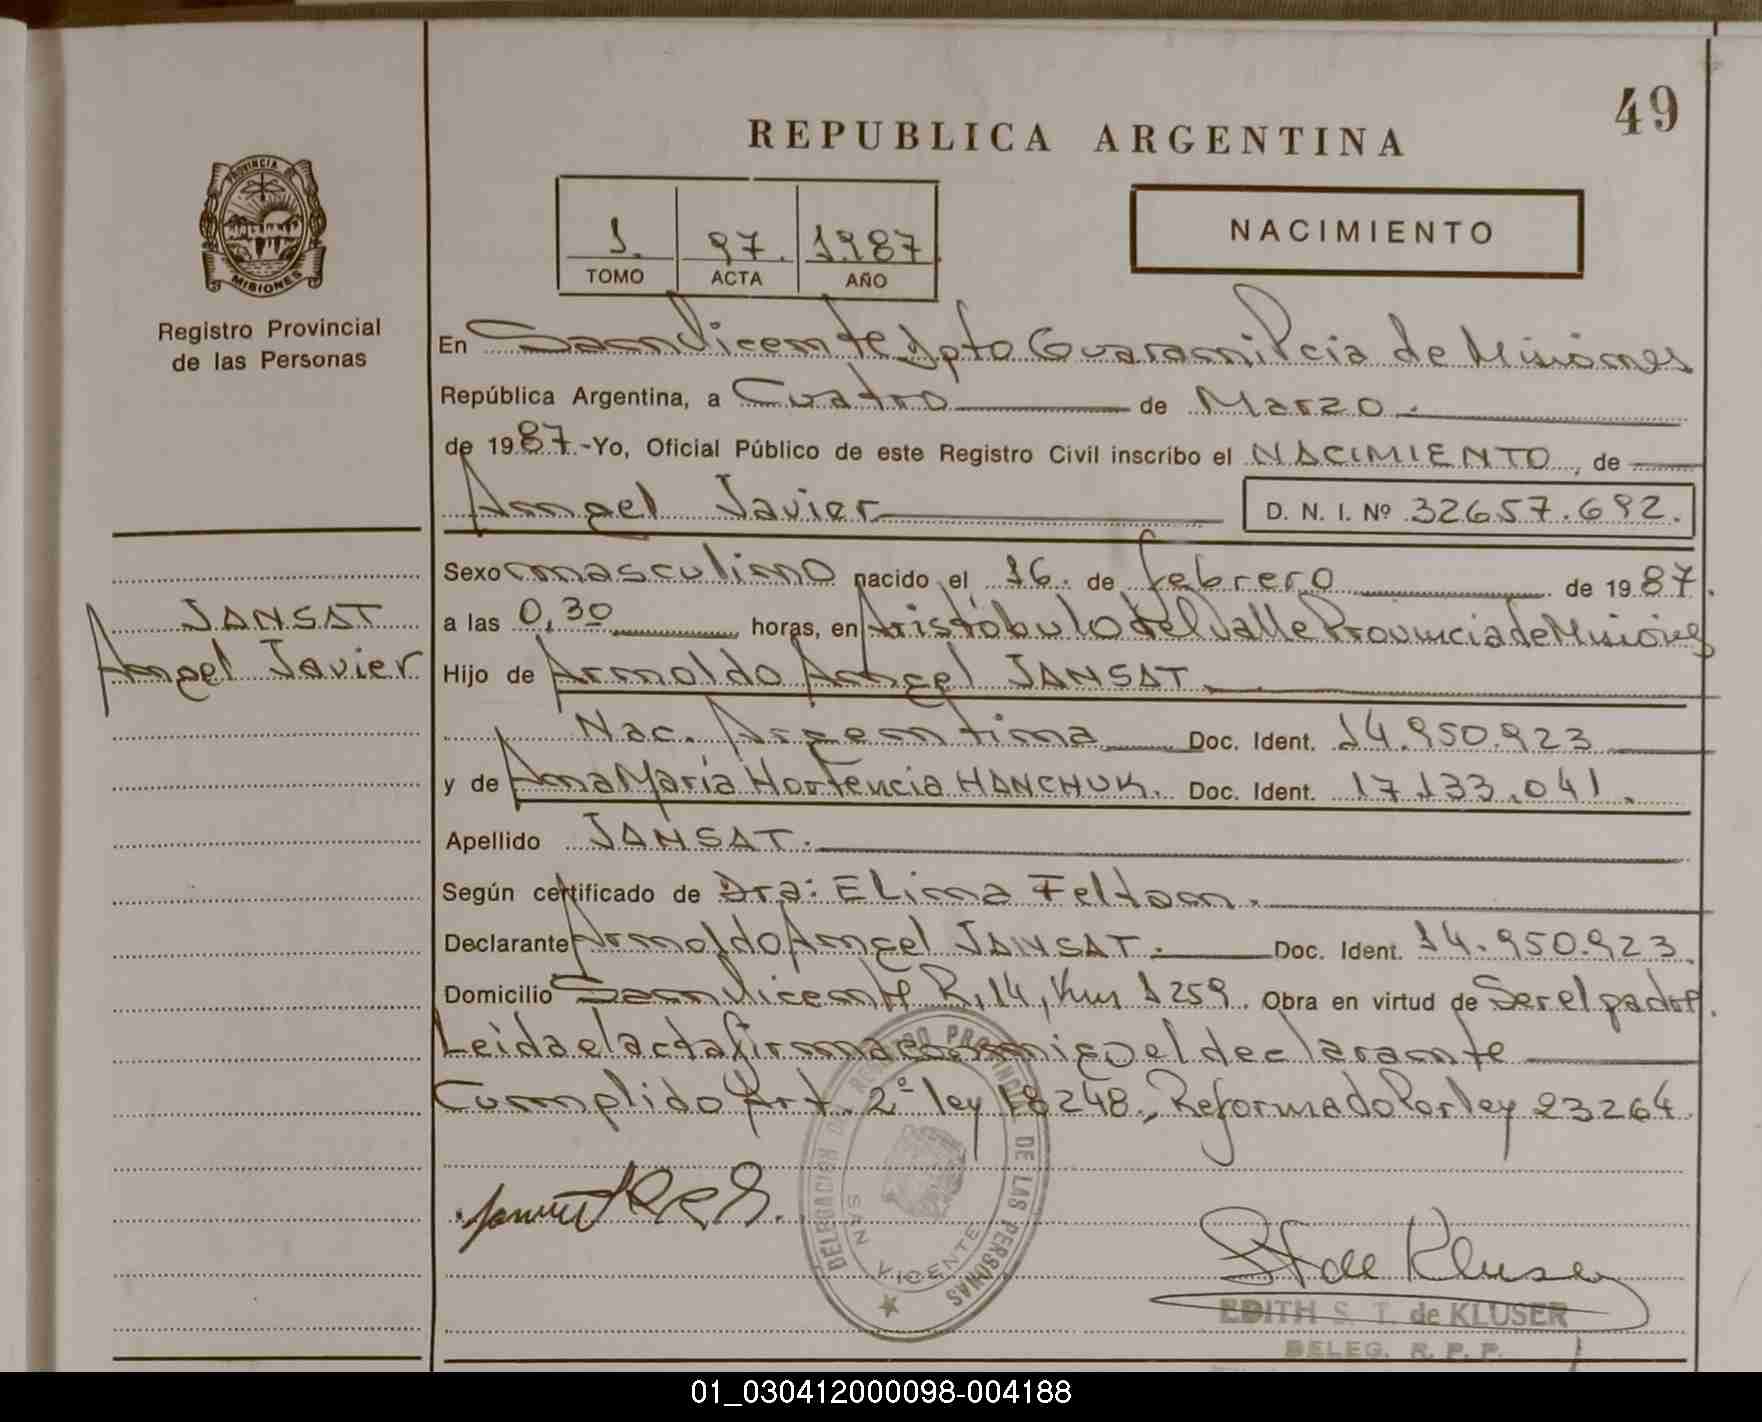 49
REPUBLICA ARGENTINA
PROVINCIA DE
MISIONES
Registro Provincial
de las Personas
1. 97. 1.987.
TOMO ACTA AÑO
NACIMIENTO
En San Vicente Dpto Guaraní Pcia de Misiones
República Argentina, a Cuatro de Marzo.
de 1987.-Yo, Oficial Público de este Registro Civil inscribo el NACIMIENTO, de
Angel Javier D. N. I. Nº 32657.692.
Sexo masculino nacido el 16. de febrero de 1987.
a las 0,30 horas, en Aristóbulo del Valle Provincia de Misiones
JANSAT
Angel Javier
Hijo de Arnoldo Angel JANSAT.
Nac. Argentina Doc. Ident. 14.950.923
y de Ana María Hortencia HANCHUK. Doc. Ident. 17.133.041.
Apellido JANSAT.
Según certificado de Dra: Elina Feltan.
Declarante Arnoldo Angel JANSAT. Doc. Ident. 14.950.923.
Domicilio San Vicente R, 14, Km 1259. Obra en virtud de Ser el padre.
Leida el acta firma conmigo el declarante
Cumplido Art. 2º ley 18248., Reformado Por ley 23264.
DELEGACION DEL REGISTRO PROVINCIAL DE LAS PERSONAS
SAN VICENTE
St de Kluser
EDITH S. T. de KLUSER
DELEG. R. P. P.
01_030412000098-004188